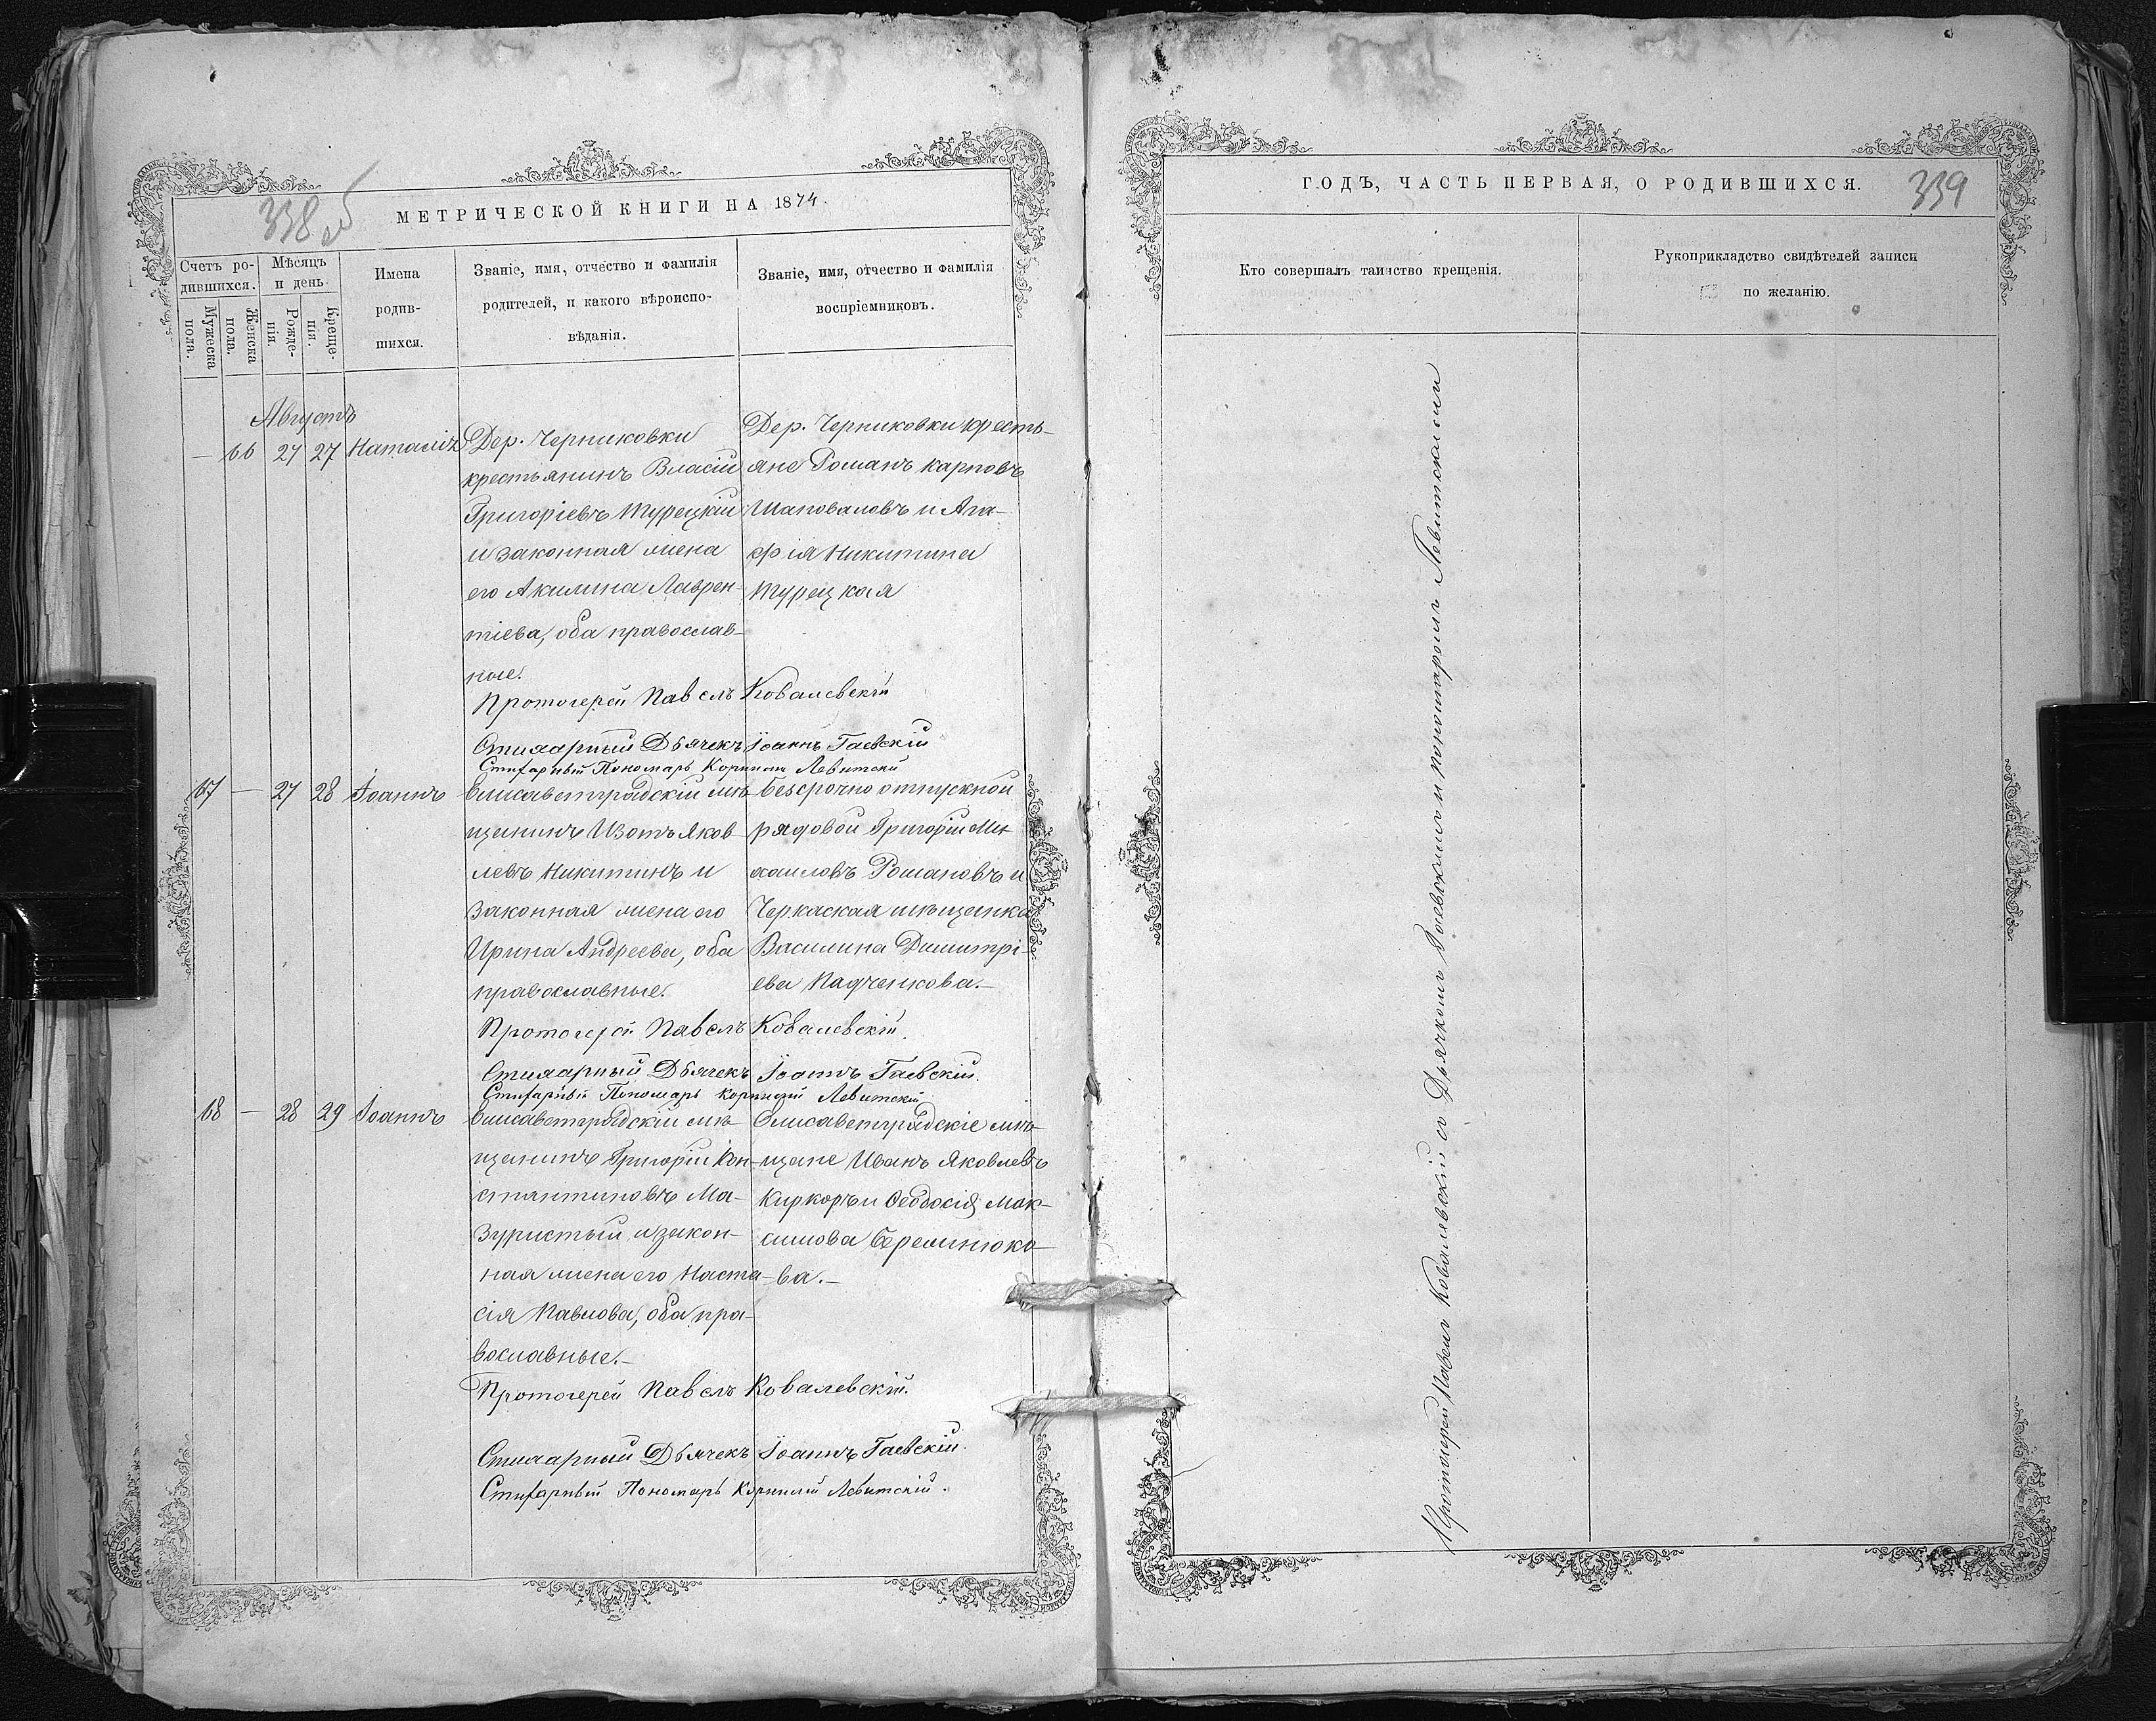 338 об
МЕТРИЧЕСКОЙ КНИГИ НА 1874.
Счетъ ро-
дившихся.
Мужеска
пола.
Женска
пола.
Мѣсяцъ
и день
Рожде-
нія.
Креще-
нія.
Имена
родив-
шихся.
Званіе, имя, отчество и фамилія
родителей, и какого вѣроиспо-
вѣданія.
Званіе, имя, отчество и фамилія
воспріемниковъ.
Августъ
— 66 27 27 Наталія
Дер. Черниковки
крестьянинъ Власій
Григоріевъ Турецкій
и законная жена
его Акилина Лаврен-
тіева, оба православ-
ные.
Дер. Черниковки кресть-
яне Романъ Карповъ
Шаповаловъ и Ага-
фія Никитина
Турецкая
Протоіерей Павелъ Ковалевскій
Стихарный Дьячекъ Іоаннъ Гаевскій
Стихарный Пономарь Корнилій Левитскій
67 — 27 28 Іоаннъ
Елисаветградскій мѣ-
щанинъ Изотъ Яков-
левъ Никитинъ и
законная жена его
Ирина Андреева, оба
православные.
Безсрочно отпускной
рядовой Григорій Ми-
хаиловъ Романовъ и
Черкаская мѣщанка
Василина Димитрі-
ева Падченкова.—
Протоіерей Павелъ Ковалевскій.
Стихарный Дьячекъ Іоаннъ Гаевскій.
Стихарный Пономарь Корнилій Левитскій
68 — 28 29 Іоаннъ
Елисаветградскій мѣ-
щанинъ Григорій Кон-
стантиновъ Ма-
зуристый и закон-
ная жена его Наста-
сія Павлова, оба пра-
вославные.—
Елисаветградскіе мѣ-
щане Иванъ Яковлевъ
Киркоръ и Ѳеодосія Мак-
симова Серемнюко-
ва.—
Протоіерей Павелъ Ковалевскій.
Стихарный Дьячекъ Іоаннъ Гаевскій.
Стихарный Пономарь Корнилій Левитскій.
ГОДЪ, ЧАСТЬ ПЕРВАЯ, О РОДИВШИХСЯ.
339
Кто совершалъ таинство крещенія.
Рукоприкладство свидѣтелей записи
по желанію.
Протоіерей Павелъ Ковалевскій съ Дьячкомъ Гаевскимъ и пономаремъ Левитскимъ